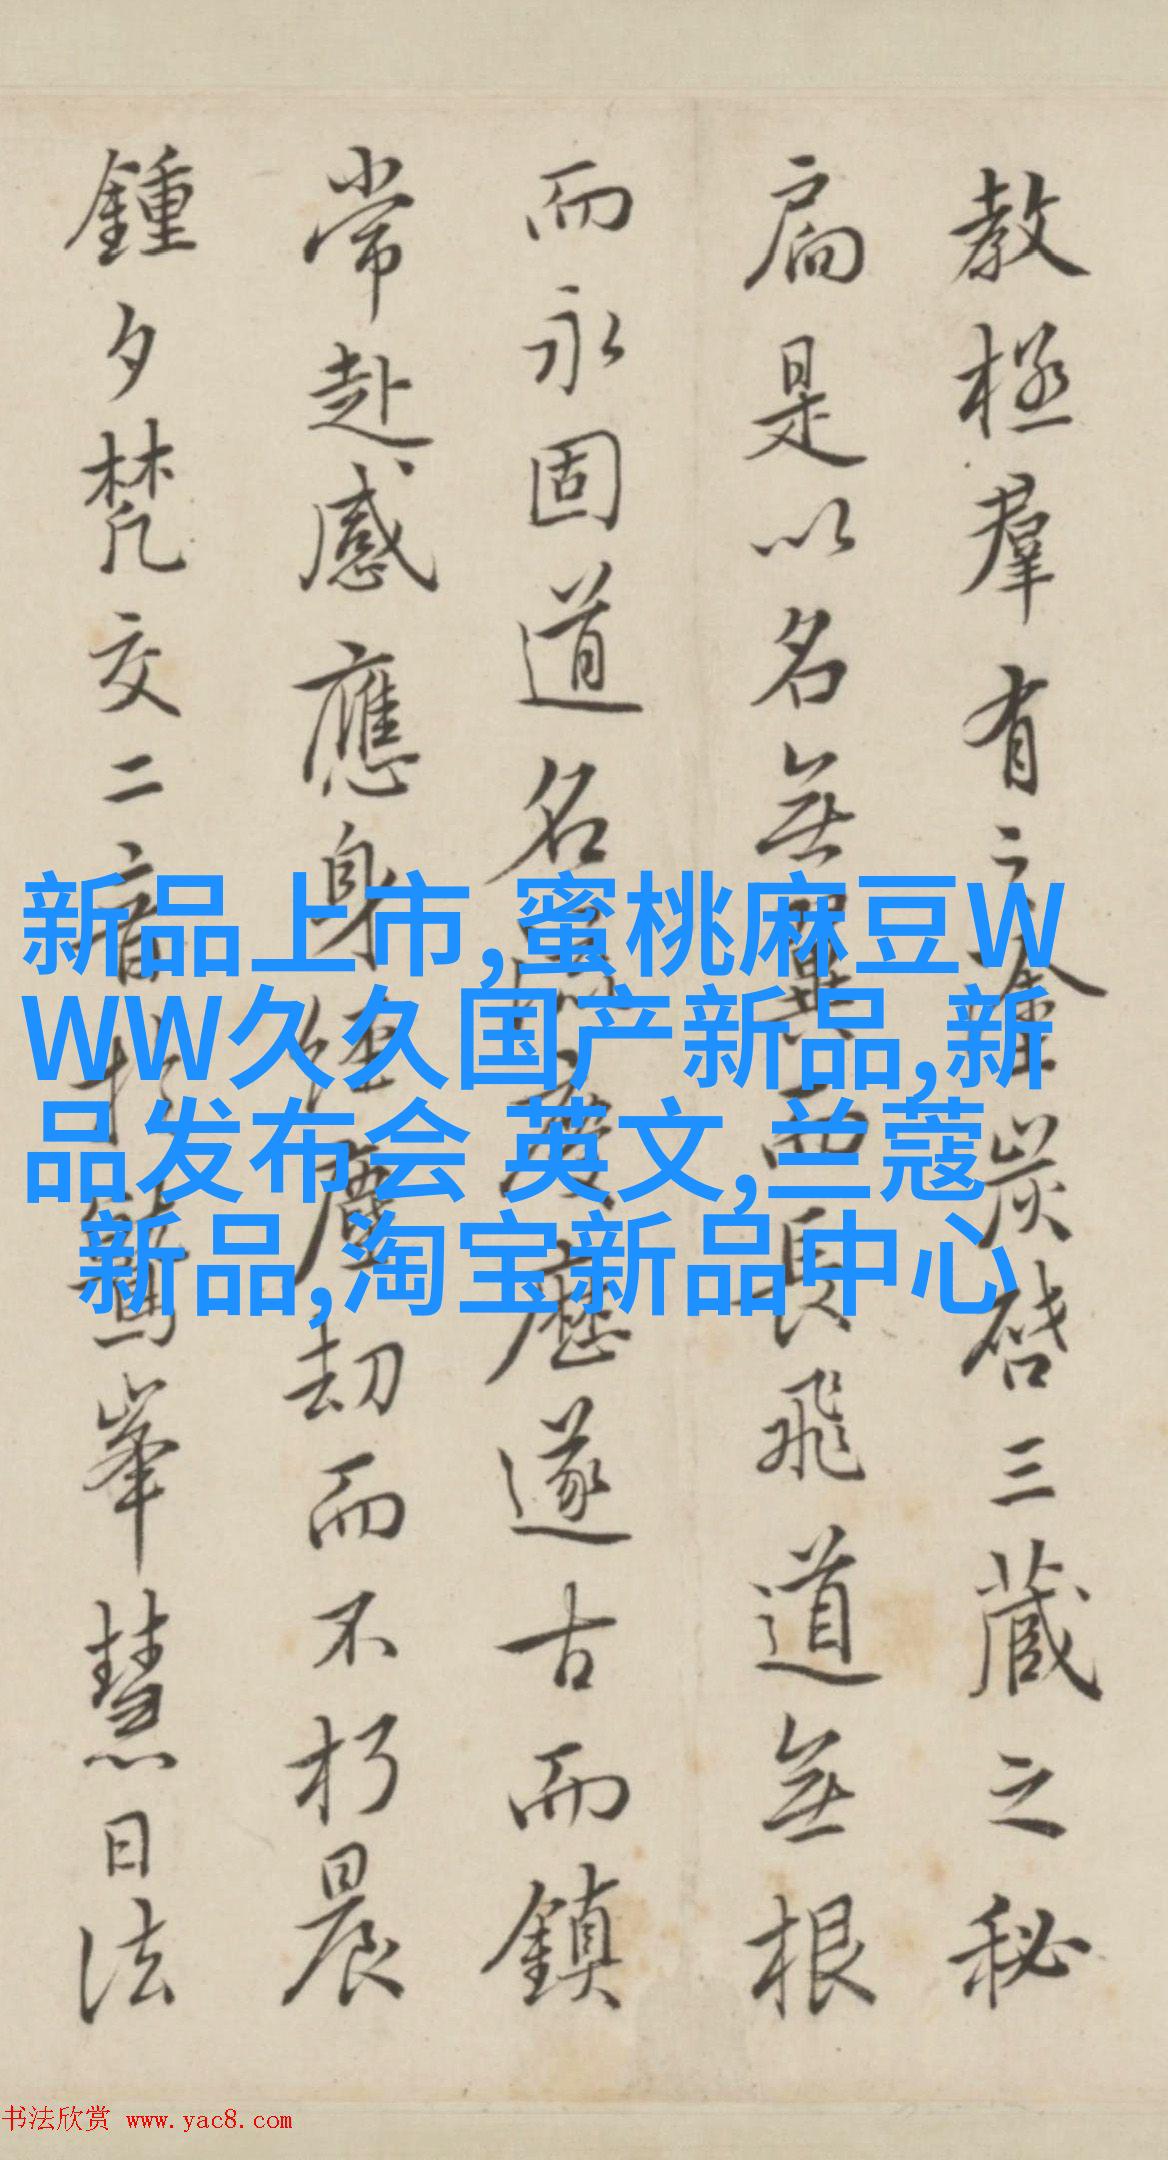 教極羣有之塗炭啓三藏之秘
扃是以名無翼而長飛道無根
而永固道名流慶歷遂古而鎮
常赴感應身經塵劫而不朽晨
鍾夕梵交二音於鷲峯慧日法
新品上市,蜜桃麻豆W
WW久久国产新品,新
品发布会 英文,兰蔻
新品,淘宝新品中心
书法欣赏 www.yac8.com